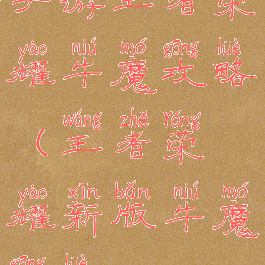 王 者 荣
yào niú mó gōng lüè
耀 牛 魔 攻 略
wáng zhě róng
（ 王 者 荣
yào xīn bǎn niú mó
耀 新 版 牛 魔
gōng lüè